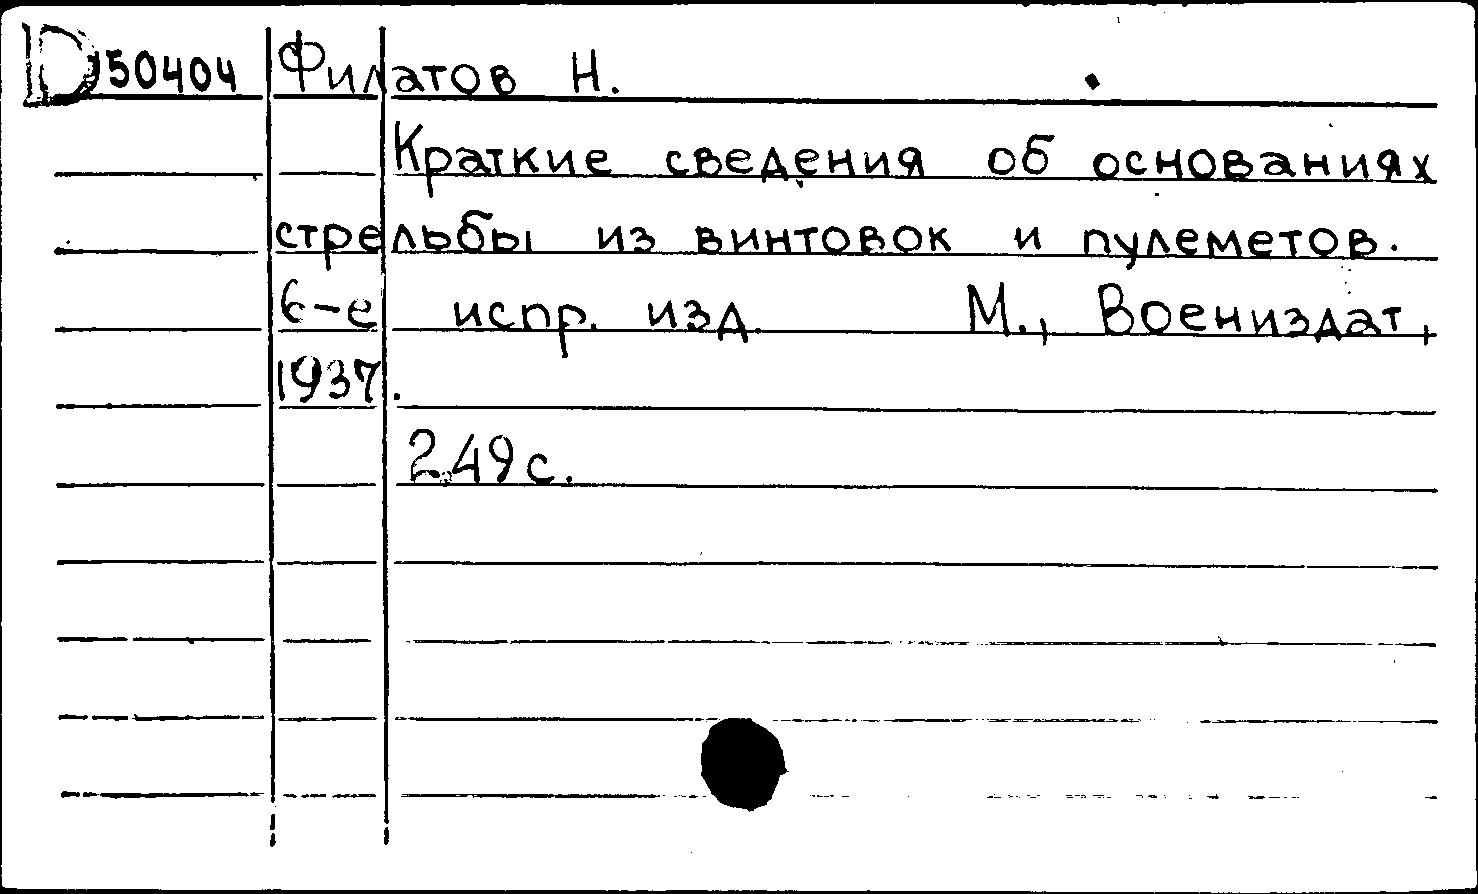 D 50404 Филатов Н.
Краткие сведения об основаниях
стрельбы из винтовок и пулеметов.
6-е испр. изд. М., Воениздат,
1937.
249 с.